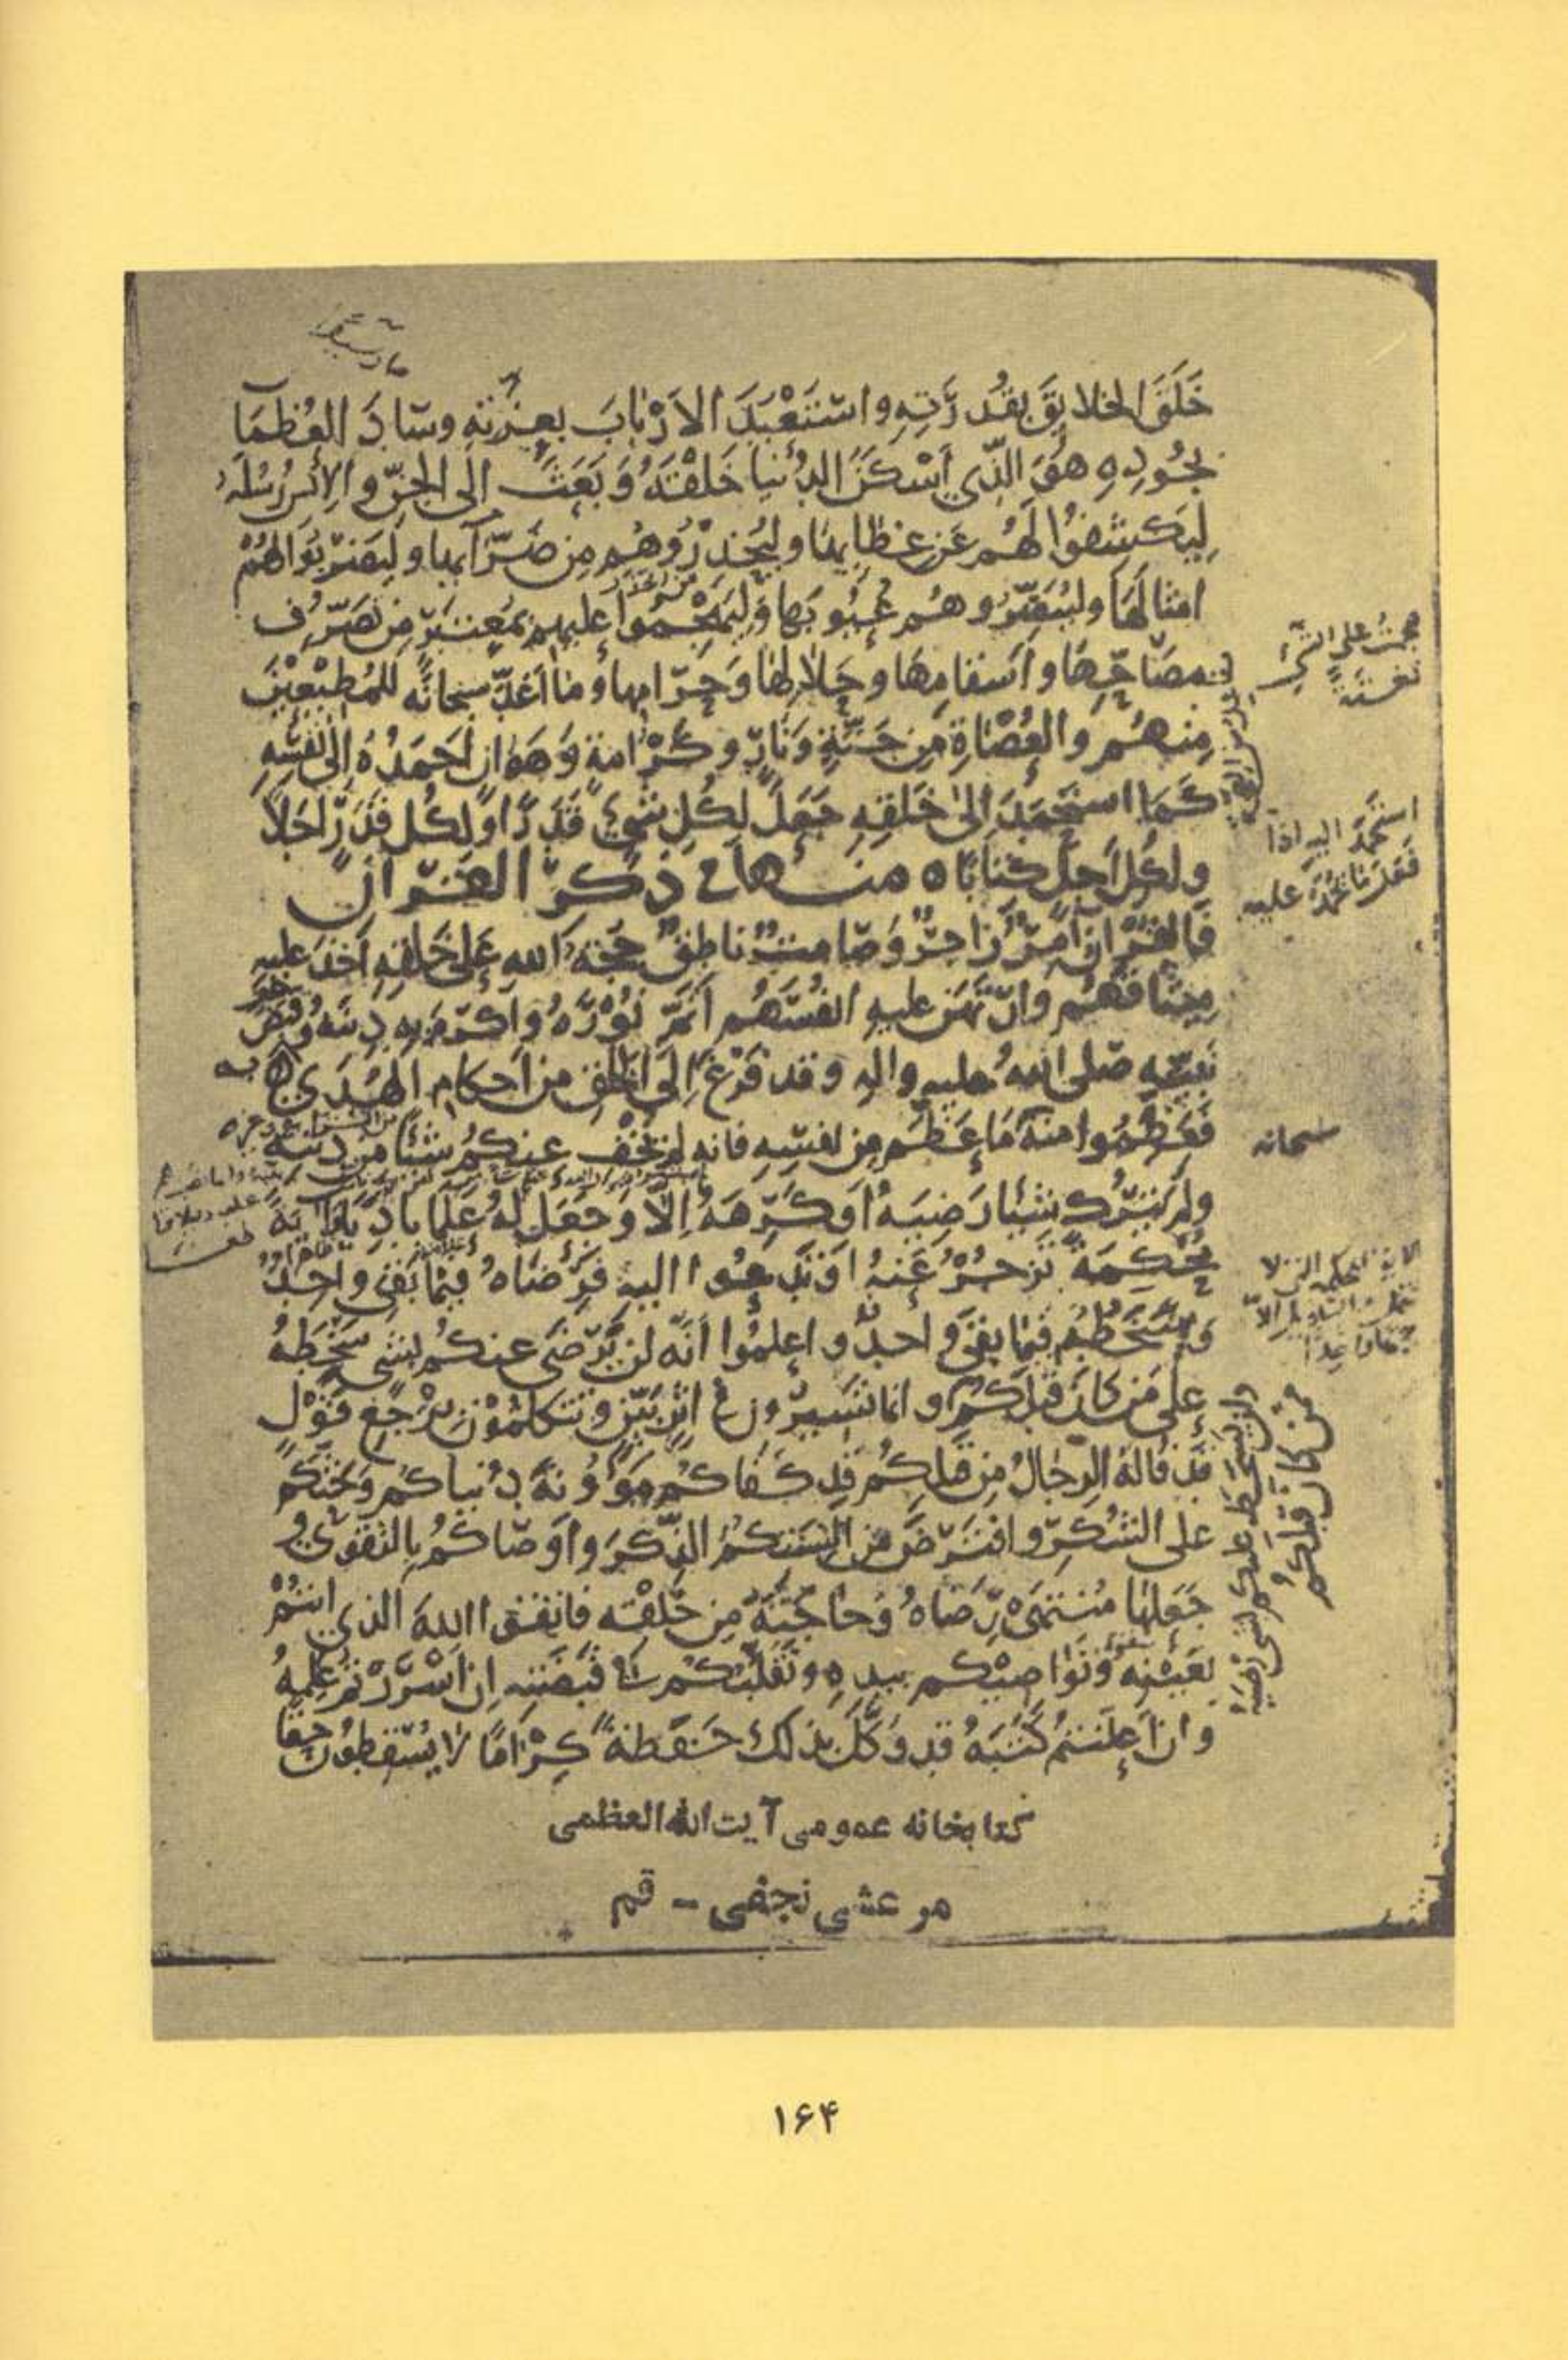 خَلَقَ الخلايِقَ بقُدرَتِهِ واستَعْبَدَ الاَرْبابَ بعِزّتِهِ وسَادَ العُظمَآ
بجُودِهِ هُوَ الّذي اَسْكَنَ الدُنيا خَلْقَهُ وَبَعَثَ الَى الجنّ والاِنْسِ رُسُلَهُ
لِيَكشِفُوا لَهُم عَن غِطايها وليُحَذِّرُوهُم مِن ضَرّآيها وليَضرِبُوا لهُمْ
امثالَهَا وليُبَصِّرُوهُم عُيُوبَها وَليَهْجُمُوا عليهم بمُعتَبَرٍ مِن تَصَرُّفِ
مصَاحِّهَا واَسقامِهَا وحَلالِهَا وَحَرَامِها وما اَعَدَّ سبحانَه للمُطِيْعِيْنَ
مِنهُم والعُصَاةِ مِن جَنّةٍ وَنَارٍ وكَرَامةٍ وَهَوَانٍ اَحمَدُهُ اِلى نفسِهِ
كَمَا استَحْمَدَ اِلى خَلقِهِ جَعَلَ لِكُلِ شَيْءٍ قَدْرًا ولكُلِ قَدْرٍ اَجَلاً
ولكُلِ اَجَلٍ كتابًا ه منها فى ذكر القرآن
فالقُرْانُ اٰمِرٌ زاجِرٌ وَصَامِتٌ ناطِقٌ حجّةُ اللهِ عَلى خَلقِهِ اَخَذَ عليهِ
مِيثاقَهُم وارتَهَنَ عليهِ انفُسَهُم اَتمَّ نُوْرَهُ واَكرَمَ بِهِ دِينَهُ وقَبَضَ
نَبيّه صلى اللهُ عليهِ والِهِ وقد فَرَغَ اِلَى الخَلقِ من اَحكامِ الهُدَى به
فعَظِّمُوا منهُ مَا عَظَّمَ مِن نفسِهِ فانه لم يُخْفِ عنكُم شيئًا مِن دينه
ولم يَترُك شيئًا رَضِيَهُ اَو كَرِهَهُ اِلّا وَجَعَلَ لهُ عَلَمًا بادِيًا وايةً
مُحْكَمَةً تَزجُرُ عَنهُ اَو تَدعُوا اليهِ فرِضَاهُ فيمَا بَقِيَ واحِدٌ
وسَخَطُهُ فيمَا بقِيَ واحدٌ واعلمُوا اَنّه لن يَرْضَى عنكُم بشى سَخِطَهُ
على مَن كانَ قبلَكُم وانما تَسيرُون في اَثَرٍ بَيّنٍ وتتكلمُوْن بِرَجْعِ قَوْلٍ
قد قالهُ الرجالُ مِن قبلِكُم قد كفاكُم مَؤُونةَ دُنياكُم وَحَثَّكُم
على الشُكرِ وافتَرَضَ مِن اَلسنَتِكُمُ الذِّكرَ واَوصَاكُم بالتقوَى و
جَعَلهَا مُنتَهَى رِضَاهُ وَحاجَتَهُ مِن خَلقِه فاتقوا اللهَ الذي اَنتُمْ
بعَيْنِهِ ونَوَاصِيْكم بيدِهِ وتَقَلُّبُكُم في قَبضَتِهِ اِن اَسْرَرْتم عَلِمَهُ
وان اَعلَنتُم كَتَبَهُ قد وَكَّلَ بذلك حَفَظَةً كِرَامًا لا يُسْقِطُونَ حقّا
استحمَدَ اليه
سبحانه
ولن يَسخَطَ عليكم بشى رَضِيَهُ
مَن كانَ قبلَكُم
کتابخانه عمومی آیت الله العظمی
مرعشی نجفی - قم
۱۶۴